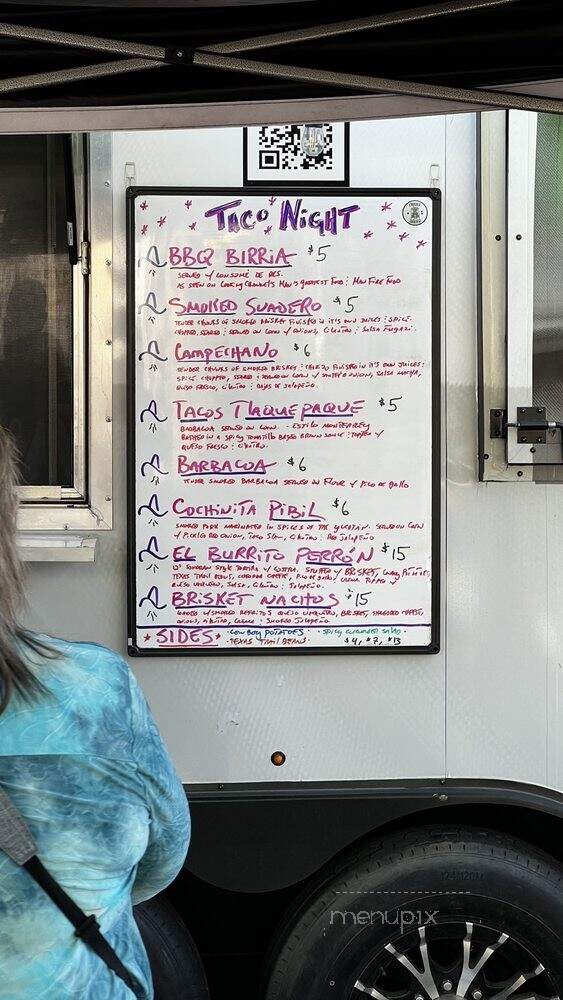 TACO NIGHT
BBQ BIRRIA $5
SERVED W/ CONSOMÉ DE RES.
AS SEEN ON COOKING CHANNELS MAN'S GREATEST FOOD : MAN FIRE FOOD
SMOKED SUADERO $5
TENDER CHUNKS OF SMOKED BRISKET FINISHED IN IT'S OWN JUICES : SPICE.
CHOPPED, SEARED : SERVED ON CORN W/ ONIONS, CILANTRO : SALSA
CAMPECHANO $6
TENDER CHUNKS OF SMOKED BRISKET : CHORIZO FINISHED IN IT'S OWN JUICES :
SPICE CHOPPED, SEARED : SERVED ON CORN W/ ONION, SALSA MACHA,
QUESO FRESCO, CILANTRO : RAJAS OF JALAPEÑO.
TACOS TLAQUEPAQUE $5
BARBACOA SERVED ON CORN - ESTILO MONTERREY
BATHED IN A SPICY TOMATILLO BASED BROWN SAUCE : TOPPED W/
QUESO FRESCO : CILANTRO.
BARBACOA $6
TENDER SMOKED BARBACOA SERVED ON FLOUR W/ PICO DE GALLO
COCHINITA PIBIL $6
SMOKED PORK MARINATED IN SPICES OF THE YUCATAN. SERVED ON CORN
W/ PICKLED RED ONION, TACO SLAW, CILANTRO : RED JALAPEÑO
EL BURRITO PERRÓN $15
12" SONORAN STYLE TORTILLA W/ COSTRA. STUFFED W/ BRISKET, COWBOY POTATOES,
TEXAS TRAIL BEANS, CHEDDAR CHEESE, PICO DE GALLO, CREMA TOPPED W/
QUESO SALSA, CILANTRO : JALAPEÑO.
BRISKET NACHOS $15
LOADED W/ SMOKED REFRITOS QUESO BRISKET, SHREDDED CHEESE,
ONIONS, CILANTRO, CREMA : SMOKED JALAPEÑO
SIDES • COWBOY POTATOES • SPICY CUCUMBER SALAD
• TEXAS TRAIL BEANS $4, $7, $13
menupix